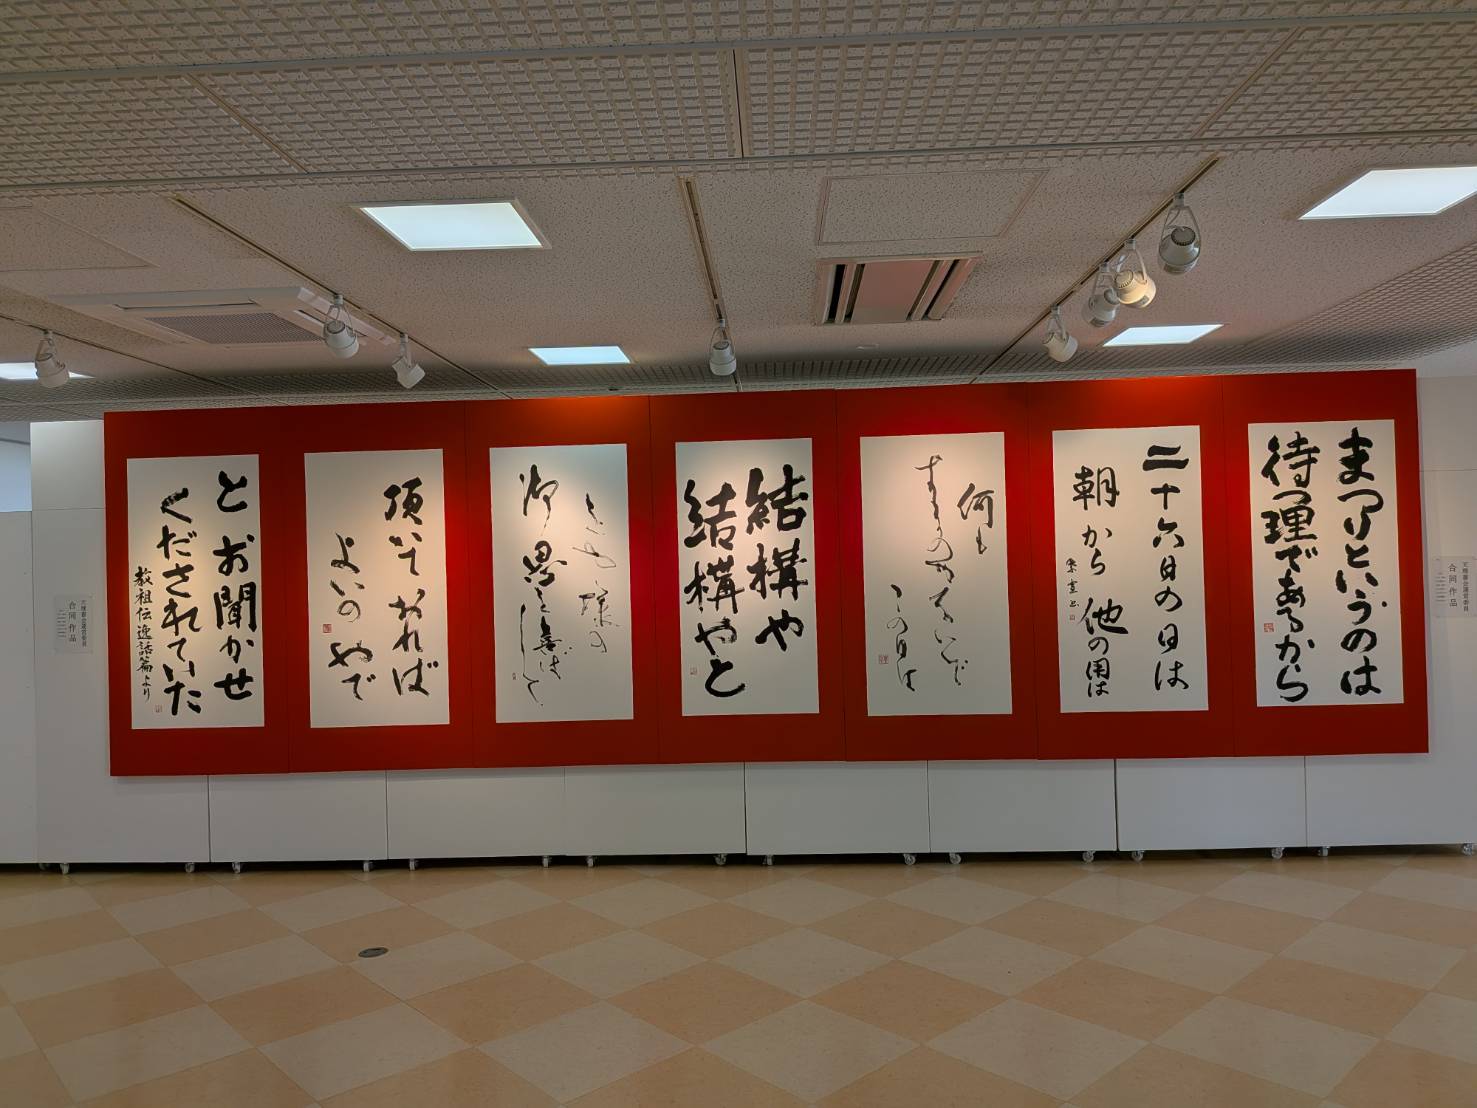 まつりというのは
待つ理であるから
二十六日の日は
朝から他の用は
何も
するのやないで
この日は
結構や
結構やと
をや様の
御恩を喜ばして
頂いておれば
よいのやで
とお聞かせ
くだされていた
教祖伝逸話篇より
合同作品
合同作品